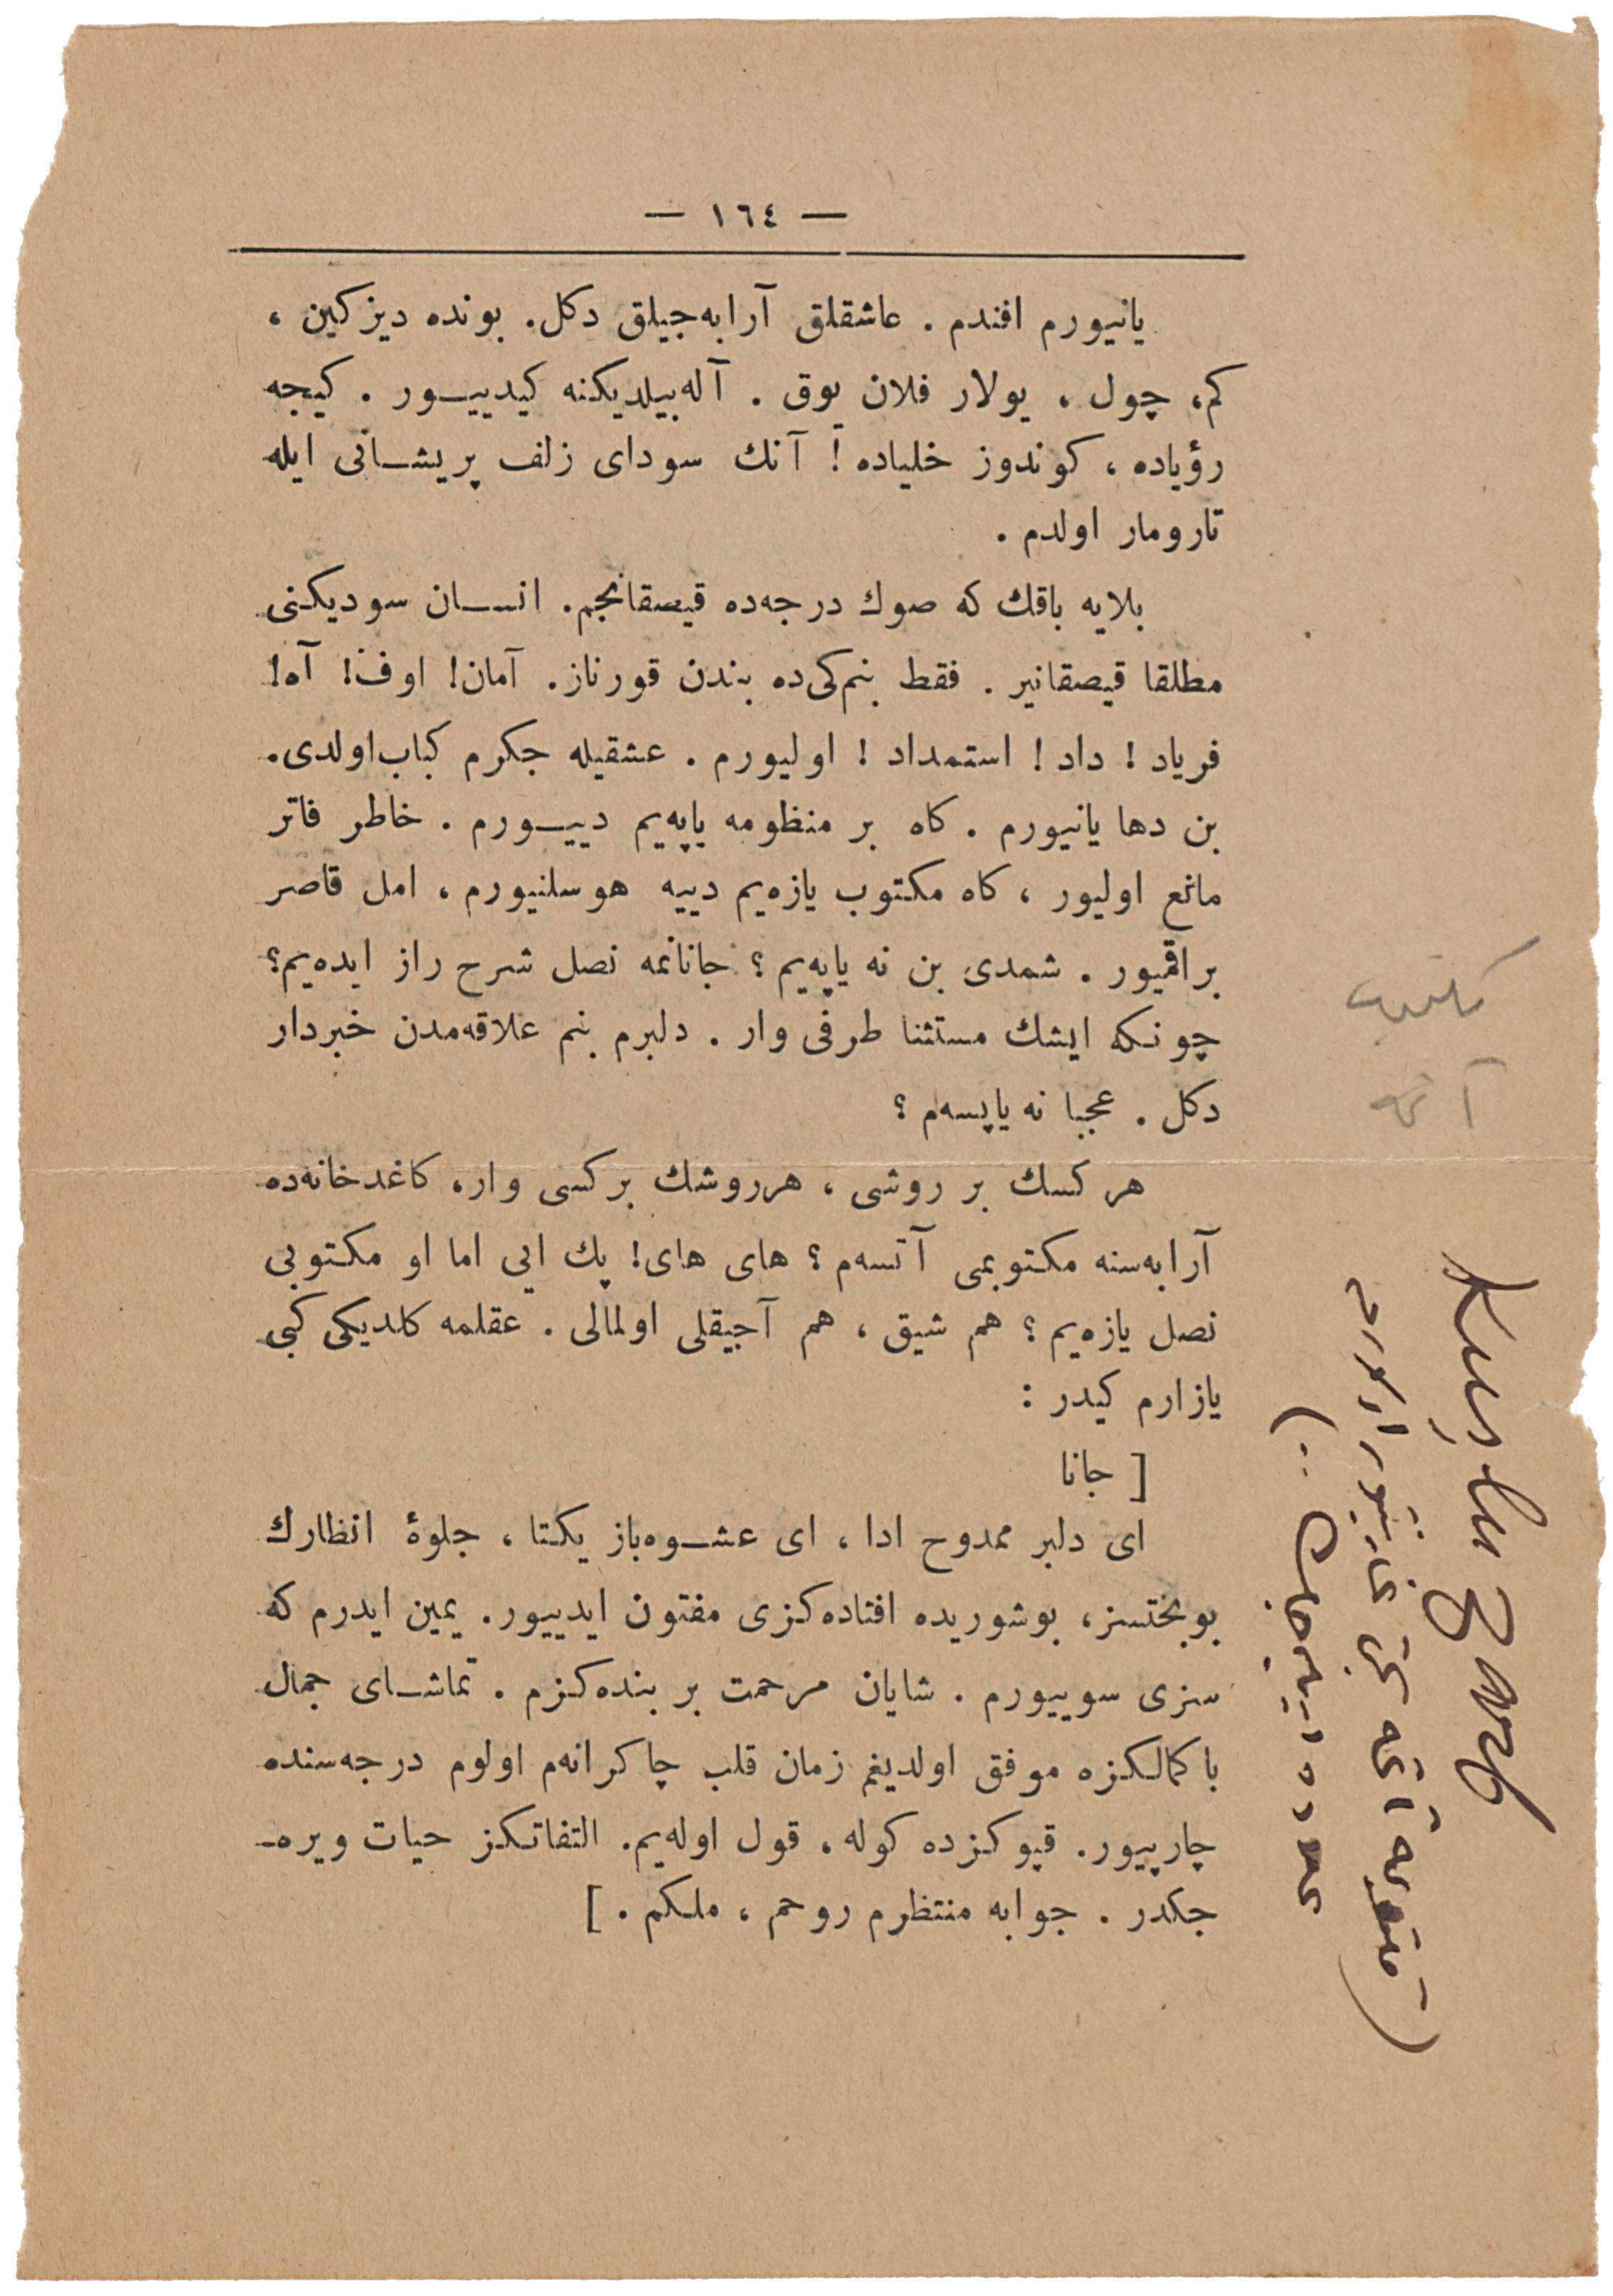 — ١٦٤ —
يانيورم افندم . عاشقلق آرابه‌جيلق دكل. بونده ديزكين ،
كم، چول ، يولار فلان يوق . آله‌بيلديكنه كيدييـــور . كيجه
رؤياده ، كوندوز خلياده ! آنك سوداى زلف پريشـــانى ايله
تارومار اولدم .
بلايه باقك كه صوك درجه‌ده قيصقانجم. انســـان سوديكنى
مطلقا قيصقانير . فقط بنم‌كى‌ده بندن قورناز. آمان! اوف! آه!
فرياد ! داد ! استمداد ! اوليورم . عشقيله جكرم كباب‌اولدى.
بن دها يانيورم . كاه بر منظومه ياپه‌يم دييـــورم . خاطر فاتر
مانع اوليور ، كاه مكتوب يازه‌يم دييه هوسلنيورم ، امل قاصر
براقميور . شمدى بن نه ياپه‌يم ؟ جانانمه نصل شرح راز ايده‌يم؟
چونكه ايشك مستثنا طرفى وار . دلبرم بنم علاقه‌مدن خبردار
دكل . عجبا نه ياپسه‌م ؟
هر كسك بر روشى ، هرروشك بركسى وار، كاغدخانه‌ده
آرابه‌سنه مكتوبمى آتسه‌م ؟ هاى هاى! پك ايى اما او مكتوبى
نصل يازه‌يم ؟ هم شيق ، هم آجيقلى اولمالى . عقلمه كلديكى كبى
يازارم كيدر :
[ جانا
اى دلبر ممدوح ادا ، اى عشـــوه‌باز يكتا ، جلوهٔ انظارك
بوبختسز، بوشوريده افتاده‌كزى مفتون ايدييور. يمين ايدرم كه
سزى سوييورم . شايان مرحمت بر بنده‌كزم . تماشـــاى جمال
باكمالكزه موفق اولديغم زمان قلب چاكرانه‌م اولوم درجه‌سنده
چارپييور. قپوكزده كوله ، قول اوله‌يم. التفاتكز حيات ويره‌ـ
جكدر . جوابه منتظرم روحم ، ملكم . ]